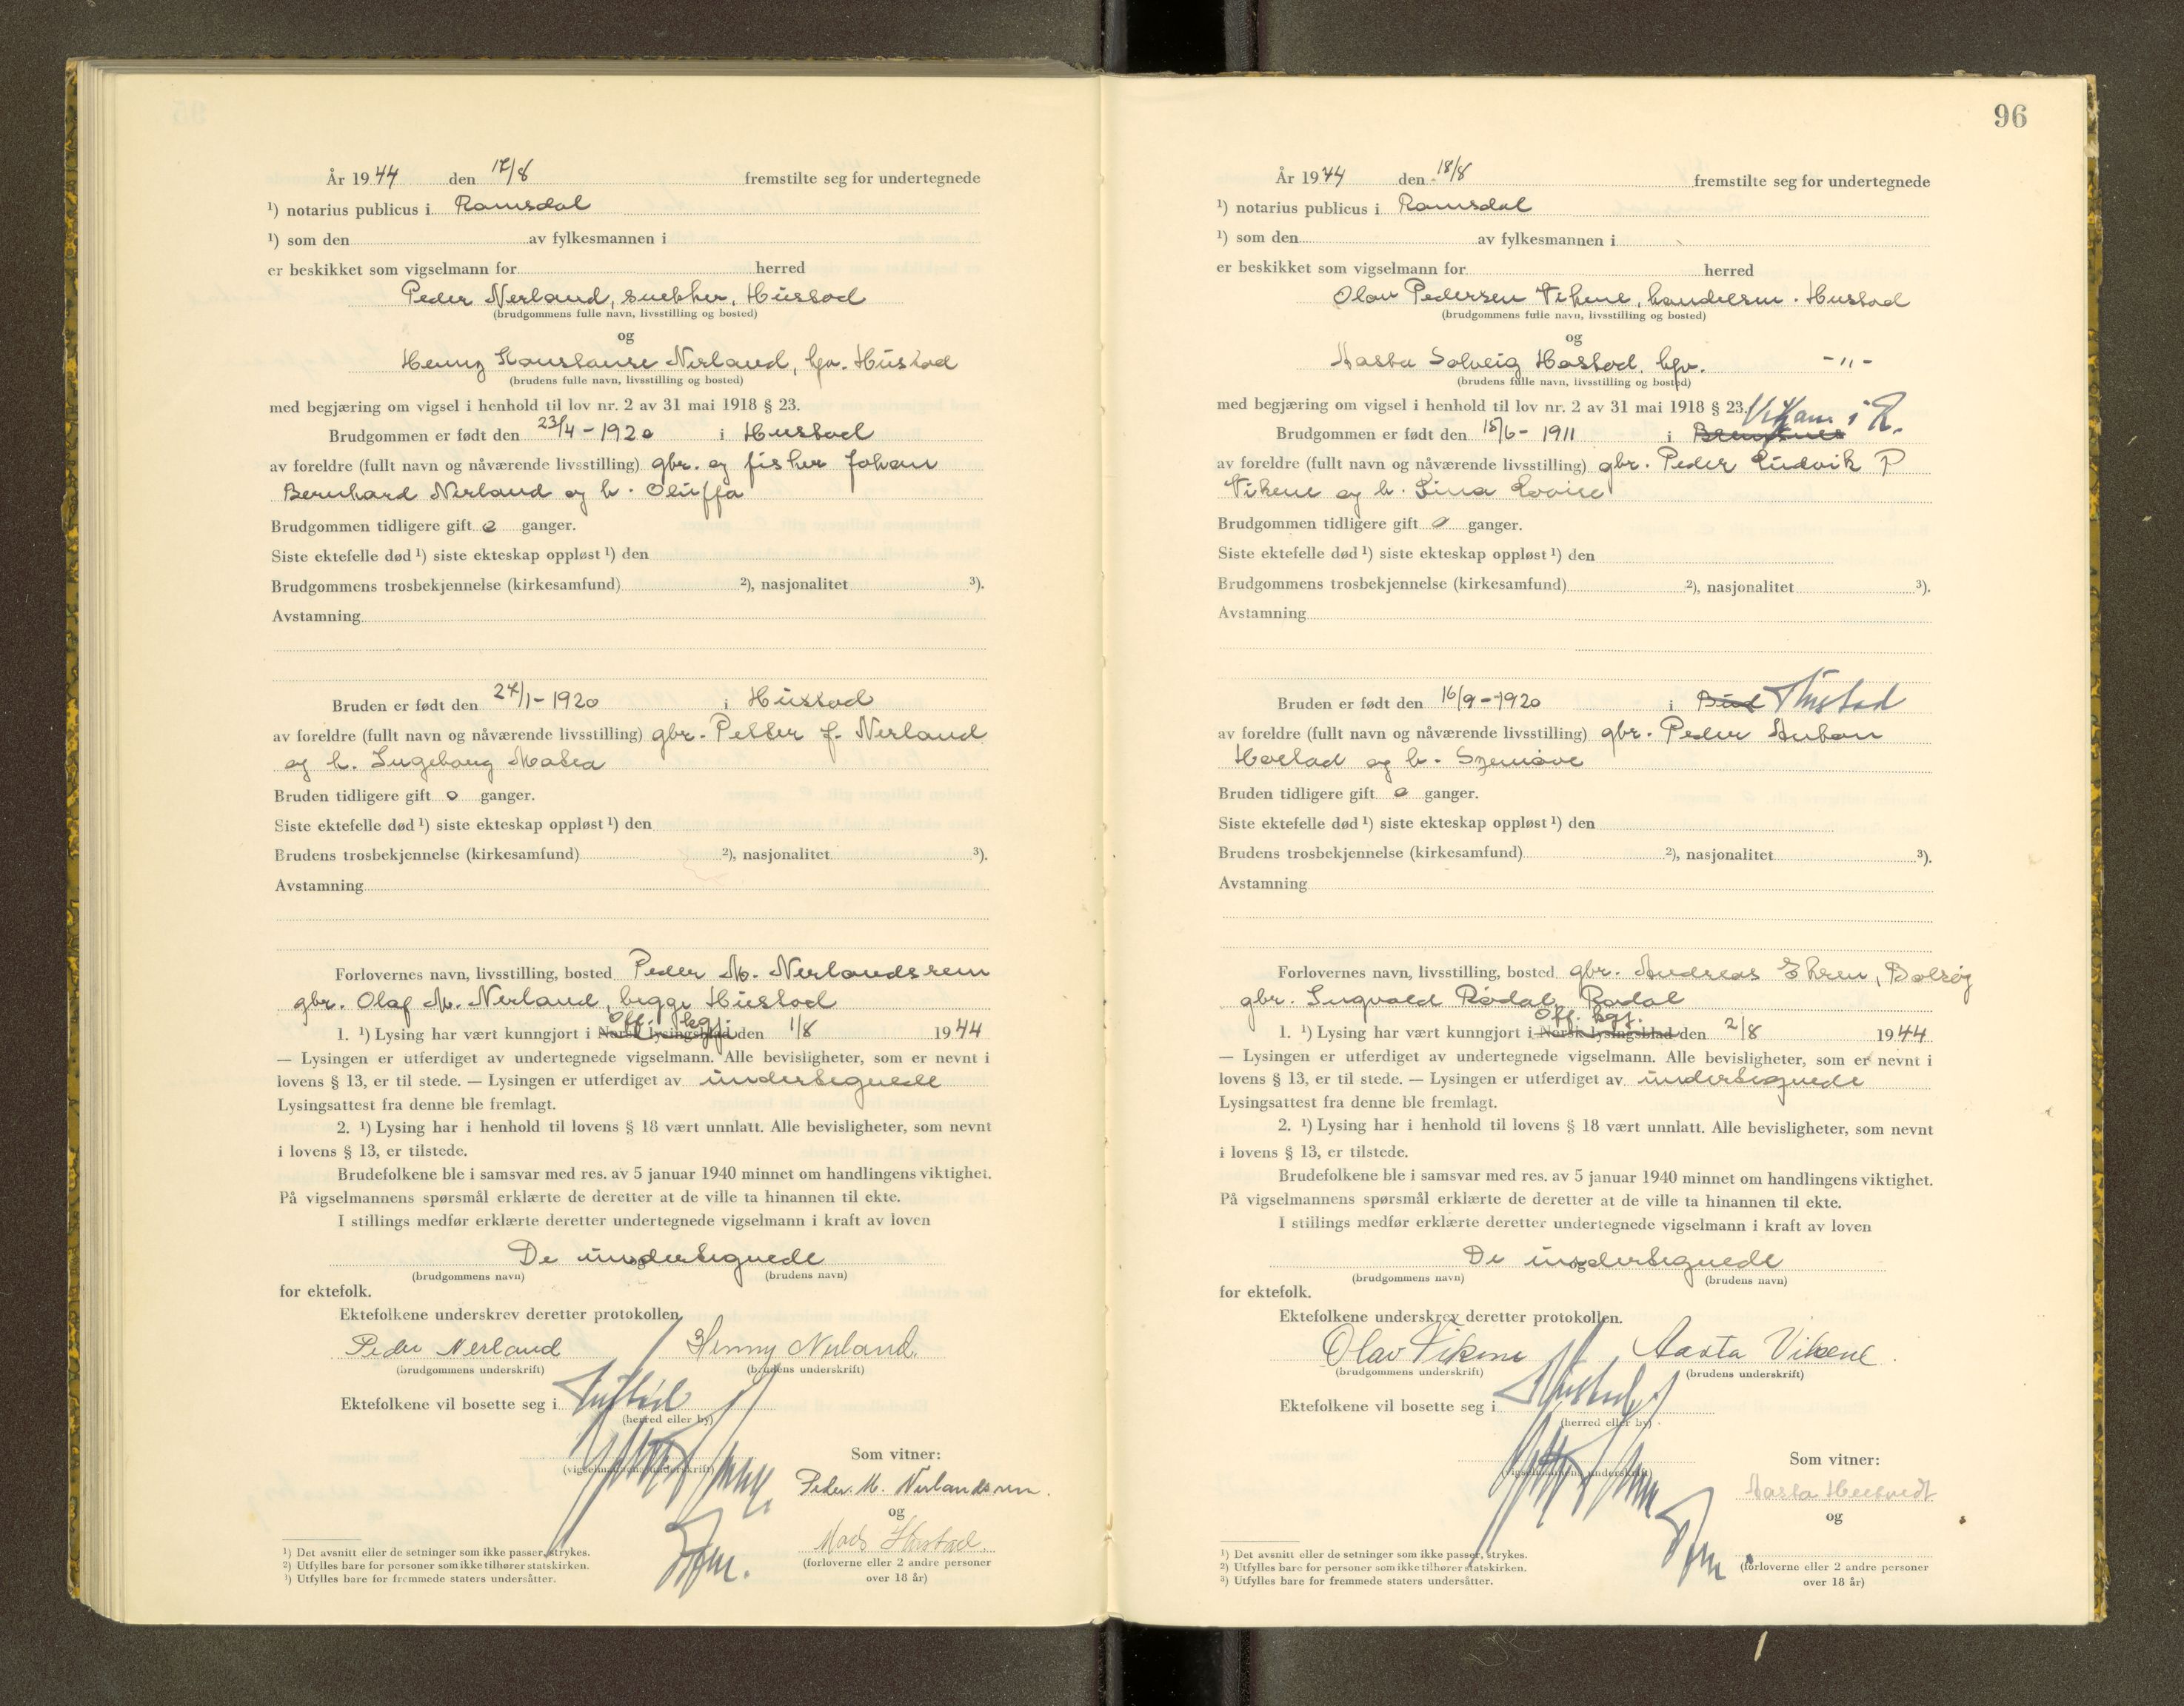 År 1944 den 17/8 fremstilte seg for undertegnede
¹) notarius publicus i Romsdal
¹) som den av fylkesmannen i
er beskikket som vigselmann for herred
Peder Nerland, snekker, Hustad
(brudgommens fulle navn, livsstilling og bosted)
og
Henny Konstanse Nerland, hjv. Hustad
(brudens fulle navn, livsstilling og bosted)
med begjæring om vigsel i henhold til lov nr. 2 av 31 mai 1918 § 23.
Brudgommen er født den 23/4 - 1920 i Hustad
av foreldre (fullt navn og nåværende livsstilling) gbr. og fisker Johan
Bernhard Nerland og h. Oluffa
Brudgommen tidligere gift o ganger.
Siste ektefelle død ¹) siste ekteskap oppløst ¹) den
Brudgommens trosbekjennelse (kirkesamfund) ²), nasjonalitet ³).
Avstamning
Bruden er født den 27/1 - 1920 i Hustad
av foreldre (fullt navn og nåværende livsstilling) gbr. Petter J. Nerland
og h. Ingeborg Matea
Bruden tidligere gift o ganger.
Siste ektefelle død ¹) siste ekteskap oppløst ¹) den
Brudens trosbekjennelse (kirkesamfund) ²), nasjonalitet ³).
Avstamning
Forlovernes navn, livsstilling, bosted Peder M. Nerlandsrem
gbr. Olaf M. Nerland, begge Hustad
Off. kgj.
1. ¹) Lysing har vært kunngjort i Norsk lysingsblad den 1/8 1944
— Lysingen er utferdiget av undertegnede vigselmann. Alle bevisligheter, som er nevnt i
lovens § 13, er til stede. — Lysingen er utferdiget av undertegnede
Lysingsattest fra denne ble fremlagt.
2. ¹) Lysing har i henhold til lovens § 18 vært unnlatt. Alle bevisligheter, som nevnt
i lovens § 13, er tilstede.
Brudefolkene ble i samsvar med res. av 5 januar 1940 minnet om handlingens viktighet.
På vigselmannens spørsmål erklærte de deretter at de ville ta hinannen til ekte.
I stillings medfør erklærte deretter undertegnede vigselmann i kraft av loven
De undertegnede
og
(brudgommens navn) (brudens navn)
for ektefolk.
Ektefolkene underskrev deretter protokollen.
Peder Nerland Henny Nerland.
(brudgommens underskrift) (brudens underskrift)
Ektefolkene vil bosette seg i Hustad
(herred eller by)
Som vitner:
(vigselmannens underskrift)
Peder M. Nerlandsrem.
og
Mads Hustad.
(forloverne eller 2 andre personer
over 18 år)
¹) Det avsnitt eller de setninger som ikke passer, strykes.
²) Utfylles bare for personer som ikke tilhører statskirken.
¹) Utfylles bare for fremmede staters undersåtter.
96
År 1944 den 18/8 fremstilte seg for undertegnede
¹) notarius publicus i Romsdal
¹) som den av fylkesmannen i
er beskikket som vigselmann for herred
Olav Pedersen Vikene, handelsm. Hustad
(brudgommens fulle navn, livsstilling og bosted)
og
Aasta Solveig Hostad, hjv. -"-
(brudens fulle navn, livsstilling og bosted)
med begjæring om vigsel i henhold til lov nr. 2 av 31 mai 1918 § 23.
Brudgommen er født den 15/6 - 1911 i Bremsnes
av foreldre (fullt navn og nåværende livsstilling) gbr. Peder Ludvik P
Vikene og h. Lina Lovise
Brudgommen tidligere gift o ganger.
Siste ektefelle død ¹) siste ekteskap oppløst ¹) den
Brudgommens trosbekjennelse (kirkesamfund) ²), nasjonalitet ³).
Avstamning
Bruden er født den 16/9 - 1920 i Bud Hustad
av foreldre (fullt navn og nåværende livsstilling) gbr. Peder Anton
Hostad og h. Synnøve
Bruden tidligere gift o ganger.
Siste ektefelle død ¹) siste ekteskap oppløst ¹) den
Brudens trosbekjennelse (kirkesamfund) ²), nasjonalitet ³).
Avstamning
Forlovernes navn, livsstilling, bosted gbr. Andreas Ehren, Bolsøy
gbr. Ingvald Rødal, Rødal
Off. kgj.
1. ¹) Lysing har vært kunngjort i Norsk lysingsblad den 2/8 1944
— Lysingen er utferdiget av undertegnede vigselmann. Alle bevisligheter, som er nevnt i
lovens § 13, er til stede. — Lysingen er utferdiget av undertegnede
Lysingsattest fra denne ble fremlagt.
2. ¹) Lysing har i henhold til lovens § 18 vært unnlatt. Alle bevisligheter, som nevnt
i lovens § 13, er tilstede.
Brudefolkene ble i samsvar med res. av 5 januar 1940 minnet om handlingens viktighet.
På vigselmannens spørsmål erklærte de deretter at de ville ta hinannen til ekte.
I stillings medfør erklærte deretter undertegnede vigselmann i kraft av loven
De undertegnede
og
(brudgommens navn) (brudens navn)
for ektefolk.
Ektefolkene underskrev deretter protokollen.
Olav Vikene Aasta Vikene.
(brudgommens underskrift) (brudens underskrift)
Ektefolkene vil bosette seg i Hustad
(herred eller by)
Som vitner:
(vigselmannens underskrift)
Aasta
og
(forloverne eller 2 andre personer
over 18 år)
¹) Det avsnitt eller de setninger som ikke passer, strykes.
²) Utfylles bare for personer som ikke tilhører statskirken.
³) Utfylles bare for fremmede staters undersåtter.